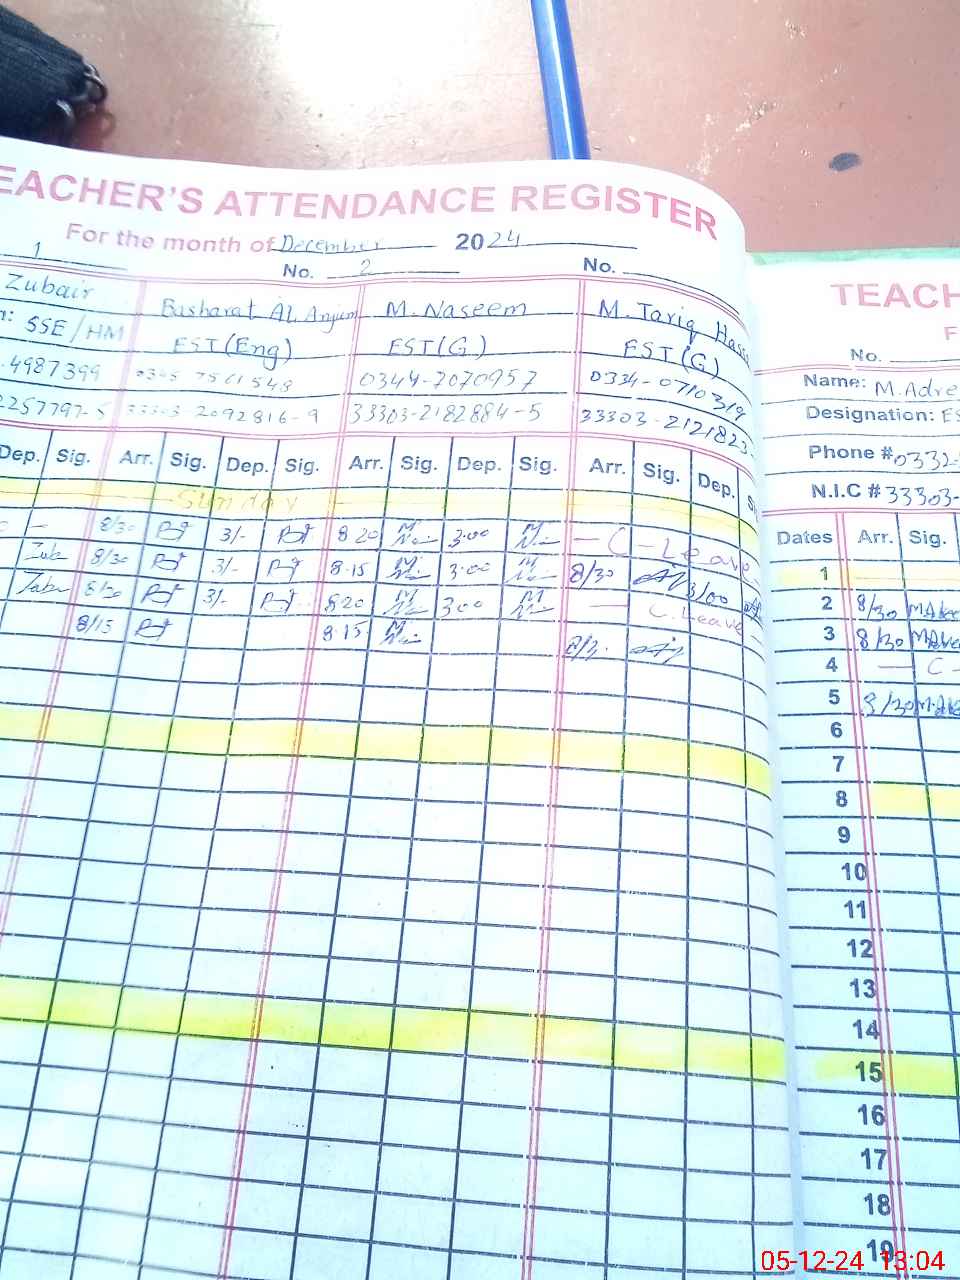 TEACHER'S ATTENDANCE REGISTER
For the month of December 2024
1 No. 2 No.
Zubair Basharat Al Anjum M. Naseem M. Tariq
SSE/HM EST(Eng) EST(G) EST(G)
4987399 0345 7561548 0344-7070957 0334-0710319
2257797-5 33303-2092816-9 33303-2182884-5 33303-2121823
Dep. Sig. Arr. Sig. Dep. Sig. Arr. Sig. Dep. Sig. Arr. Sig. Dep.
Sunday
- 8/30 3/- 8 20 3:00 - C - Leave
Zub 8/30 3/- 8.15 3:00 8/30 3/00
8/30 3/- 8 20 300 - C. Leave -
8/15 8.15
TEACH
No.
Name: M. Adre
Designation: ES
Phone # 0332-
N.I.C # 33303-
Dates Arr. Sig.
1
2 8/30
3 8/30
4 - C -
5 8/30
6
7
8
9
10
11
12
13
14
15
16
17
18
19
05-12-24 13:04